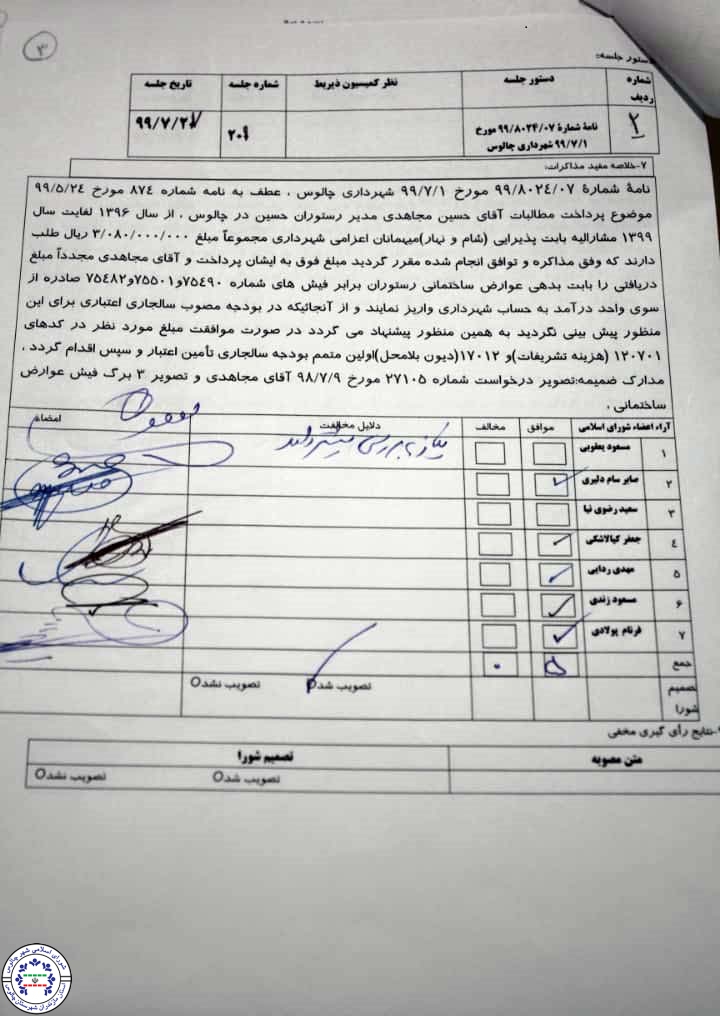 ۳
دستور جلسه:
شماره ردیف	دستور جلسه	نظر کمیسیون ذیربط	شماره جلسه	تاریخ جلسه
۲	نامهٔ شمارهٔ ۹۹/۸۰۲۴/۰۷ مورخ		۲۰۱	۹۹/۷/۲۷
۹۹/۷/۱ شهرداری چالوس
۷-خلاصه مفید مذاکرات:
نامهٔ شمارهٔ ۹۹/۸۰۲۴/۰۷ مورخ ۹۹/۷/۱ شهرداری چالوس ، عطف به نامه شماره ۸۷۴ مورخ ۹۹/۵/۲۴
موضوع پرداخت مطالبات آقای حسین مجاهدی مدیر رستوران حسین در چالوس ، از سال ۱۳۹۶ لغایت سال
۱۳۹۹ مشارالیه بابت پذیرایی (شام و نهار)میهمانان اعزامی شهرداری مجموعاً مبلغ ۳/۰۸۰/۰۰۰/۰۰۰ ریال طلب
دارند که وفق مذاکره و توافق انجام شده مقرر گردید مبلغ فوق به ایشان پرداخت و آقای مجاهدی مجدداً مبلغ
دریافتی را بابت بدهی عوارض ساختمانی رستوران برابر فیش های شماره ۷۵۴۹۰و۷۵۵۰۱و۷۵۴۸۲ صادره از
سوی واحد درآمد به حساب شهرداری واریز نمایند و از آنجائیکه در بودجه مصوب سالجاری اعتباری برای این
منظور پیش بینی نگردید به همین منظور پیشنهاد می گردد در صورت موافقت مبلغ مورد نظر در کدهای
۱۲۰۷۰۱ (هزینه تشریفات)و ۱۷۰۱۲(دیون بلامحل)اولین متمم بودجه سالجاری تأمین اعتبار و سپس اقدام گردد ،
مدارک ضمیمه:تصویر درخواست شماره ۲۷۱۰۵ مورخ ۹۸/۷/۹ آقای مجاهدی و تصویر ۳ برگ فیش عوارض
ساختمانی .
آراء اعضاء شورای اسلامی	موافق	مخالف	دلایل مخالفت	امضاء
۱	مسعود یعقوبی
۲	صابر سام دلیری
۳	سعید رضوی نیا
۴	جعفر کیالاشکی
۵	مهدی ردایی
۶	مسعود زندی
۷	فرنام پولادی
جمع	۵	۰
تصمیم شورا	تصویب شد	تصویب نشد
-نتایج رأی گیری مخفی
متن مصوبه	تصمیم شورا
تصویب شد	تصویب نشد
شورای اسلامی شهر چالوس
استان مازندران شهرستان چالوس